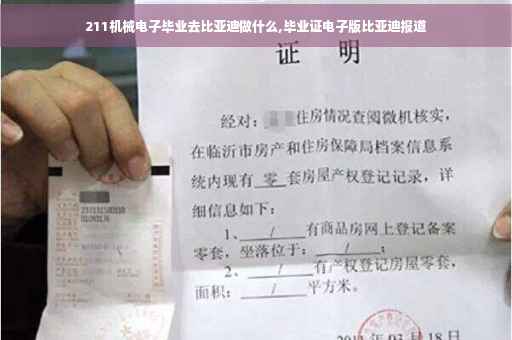 211机械电子毕业去比亚迪做什么,毕业证电子版比亚迪报道
证 明
经对: 住房情况查阅微机核实,
在临沂市房产和住房保障局档案信息系
统内现有 零 套房屋产权登记记录,详
细信息如下:
1、 / 有商品房网上登记备案
零套,坐落位于: / ;
2、 / 有产权登记房屋零套,
面积: / 平方米。
03 月 18 日